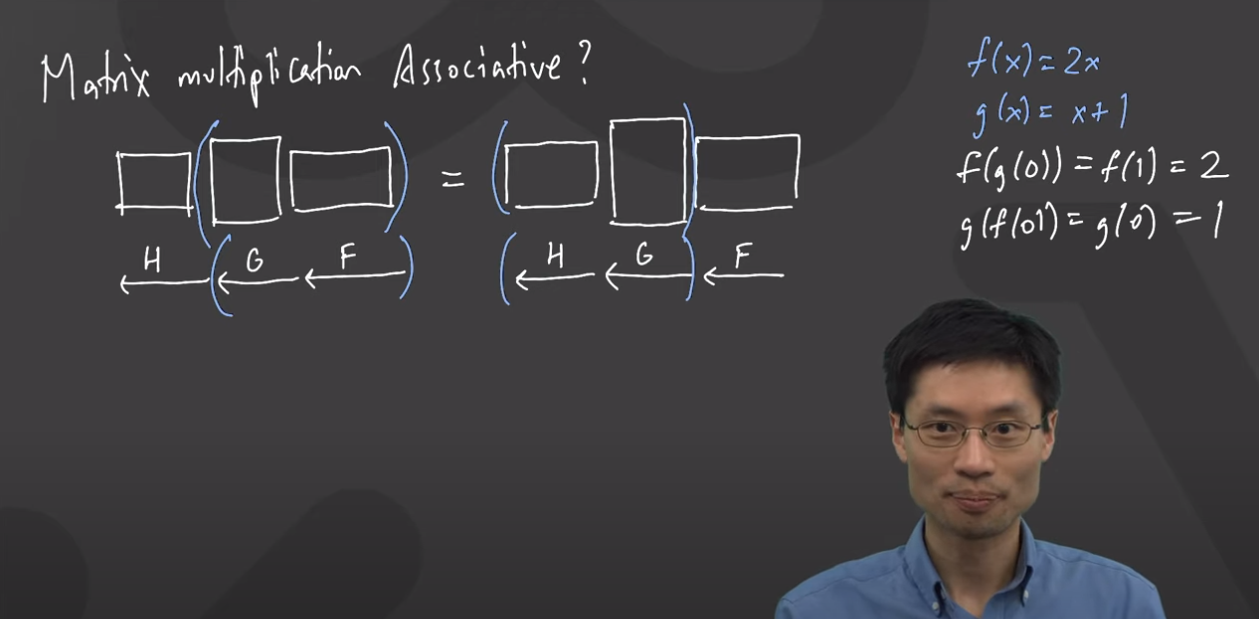 Matrix multiplication Associative?
( ) = ( )
H ( G F ) ( H G ) F
f(x) = 2x
g(x) = x+1
f(g(0)) = f(1) = 2
g(f(0)) = g(0) = 1